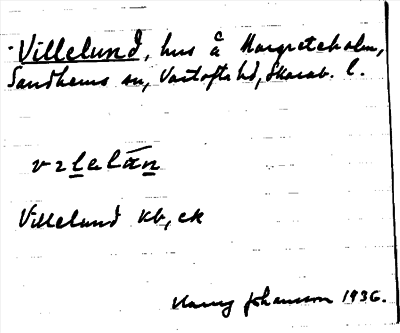 Villelund, hus å Margreteholm,
Sandhems sn, Vartofta hd, Skarab. l.
vɪlelán
Villelund kb, ek
Harry Johansson 1936.